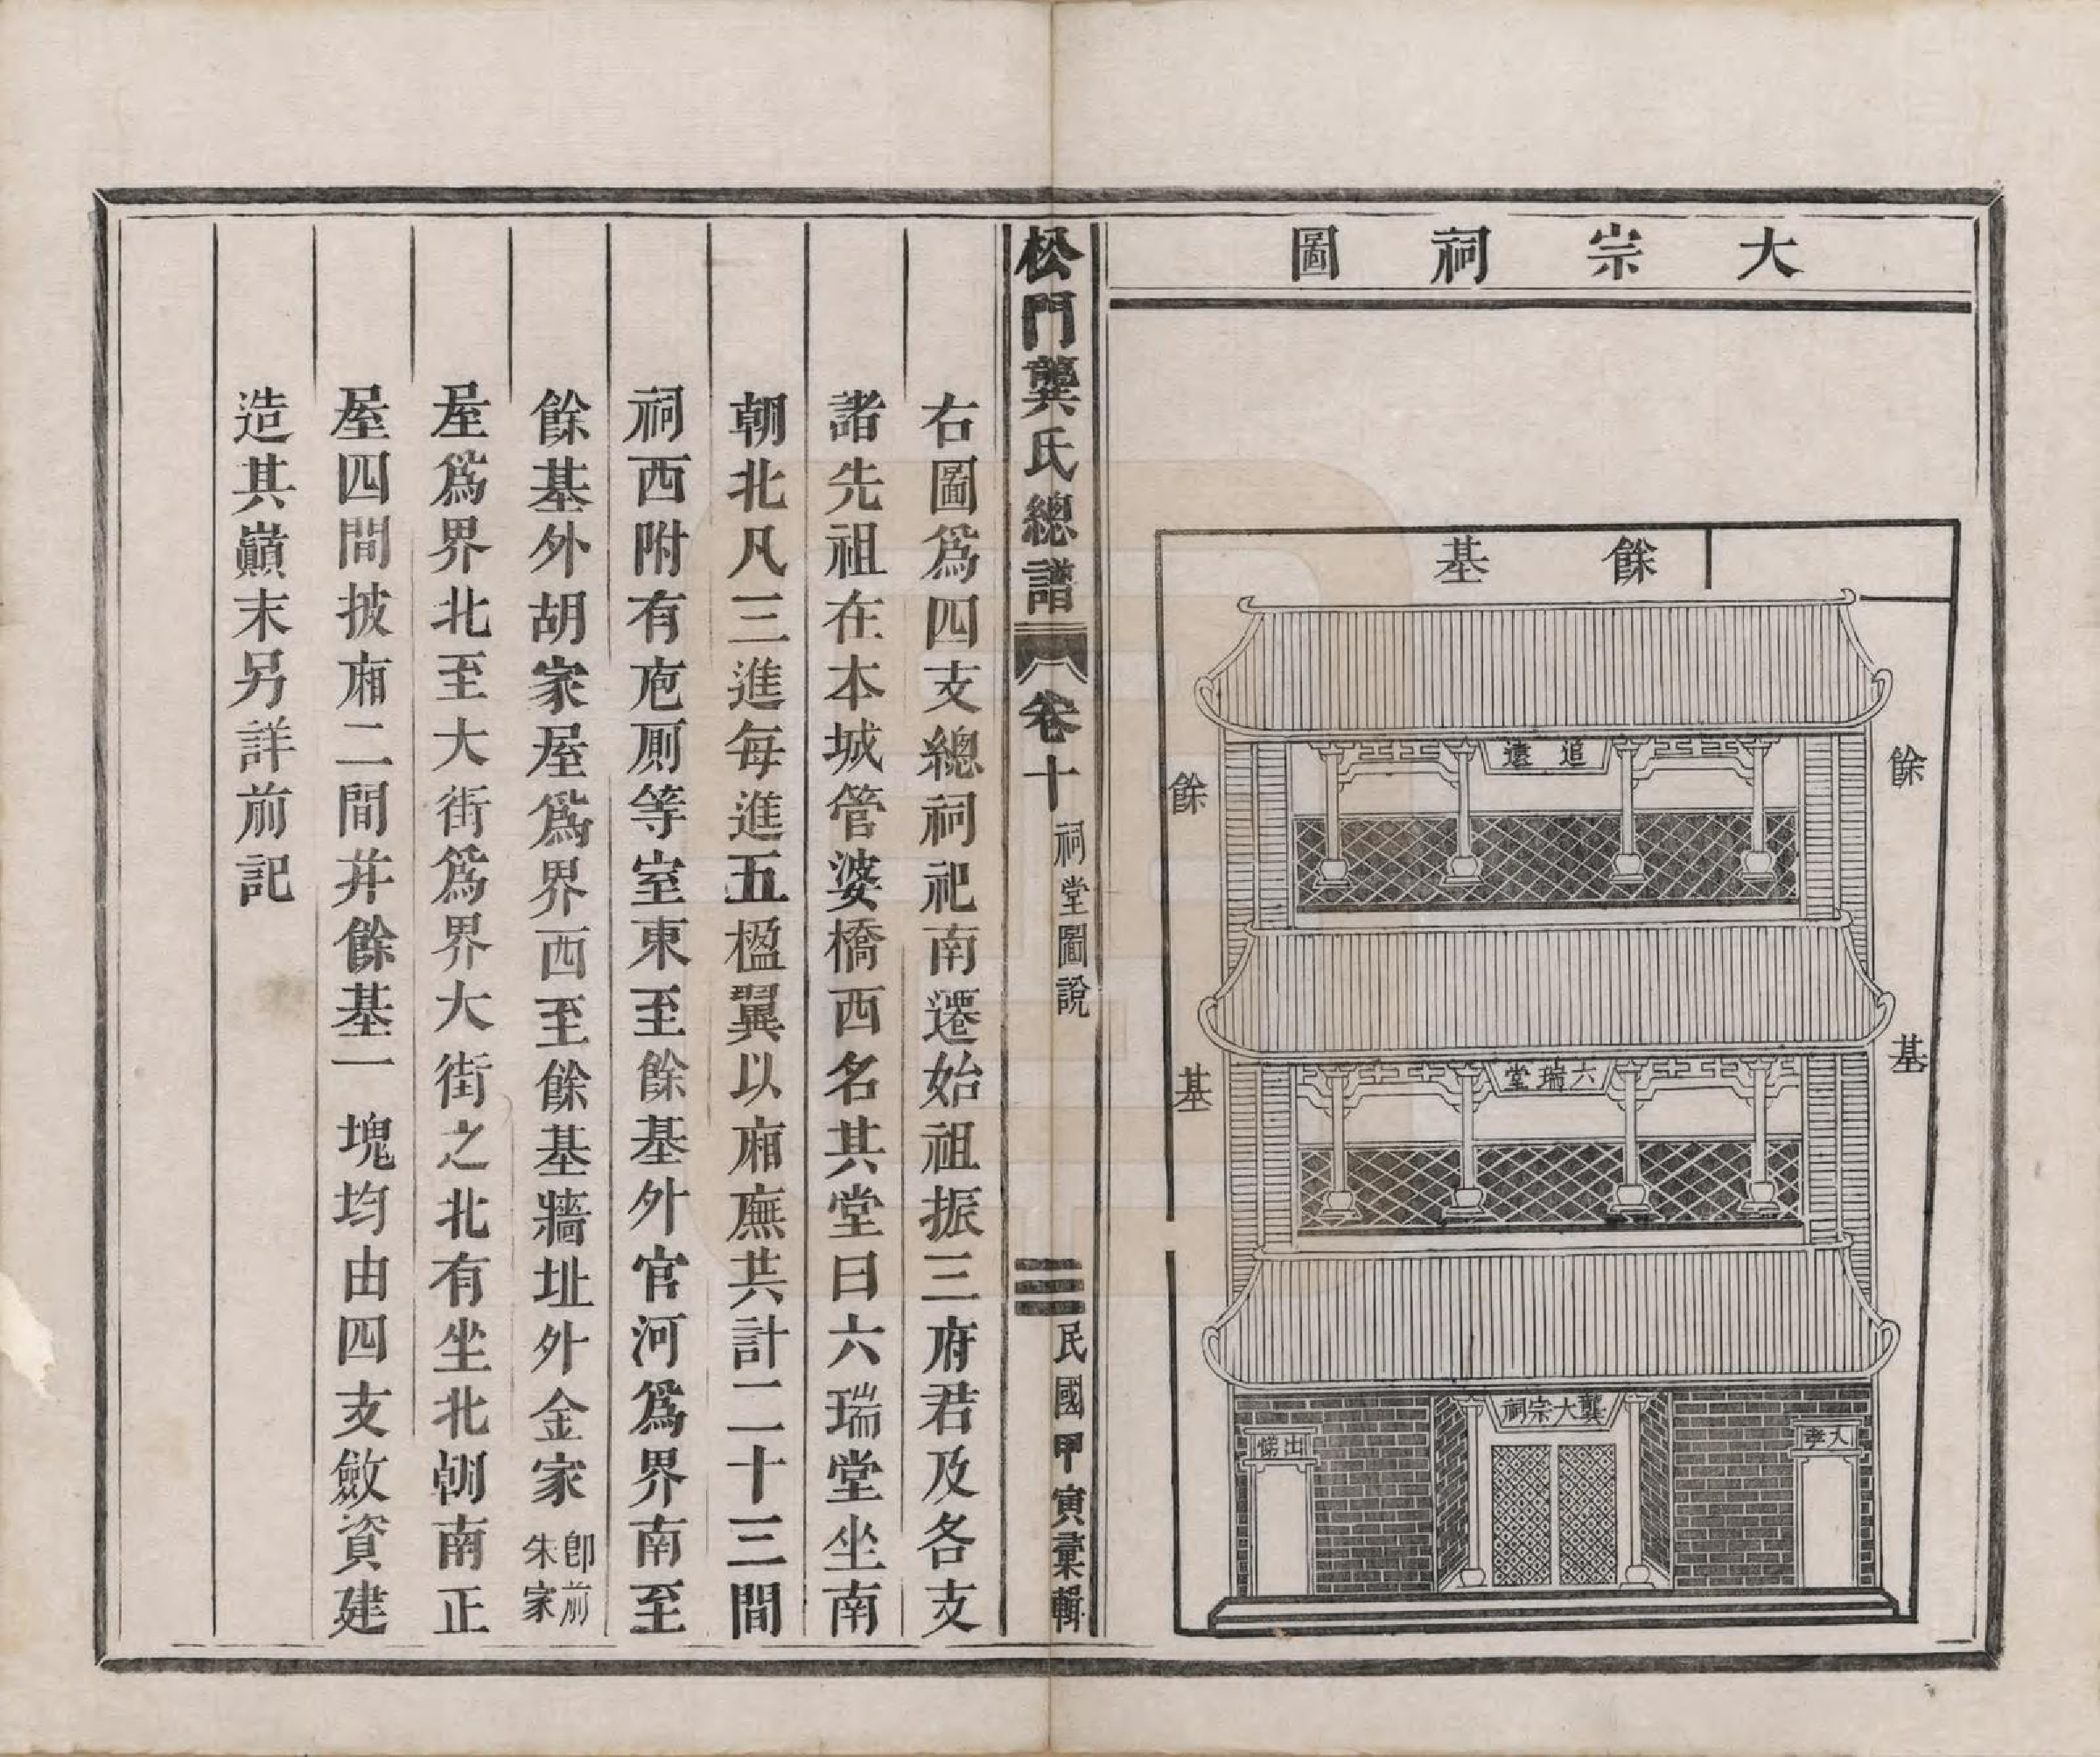 大宗祠圖
餘基
餘
基
餘
基
追遠
六瑞堂
龔大宗祠
入孝
出悌
松門龔氏總譜
卷十
祠堂圖說
三
民國甲寅彙輯
右圖爲四支總祠祀南遷始祖振三府君及各支
諸先祖在本城管婆橋西名其堂曰六瑞堂坐南
朝北凡三進每進五楹翼以廂廡共計二十三間
祠西附有庖厕等室東至餘基外官河爲界南至
餘基外胡家屋爲界西至餘基牆址外金家卽前朱家
屋爲界北至大街爲界大街之北有坐北朝南正
屋四間披廂二間幷餘基一塊均由四支斂資建
造其巔末另詳前記